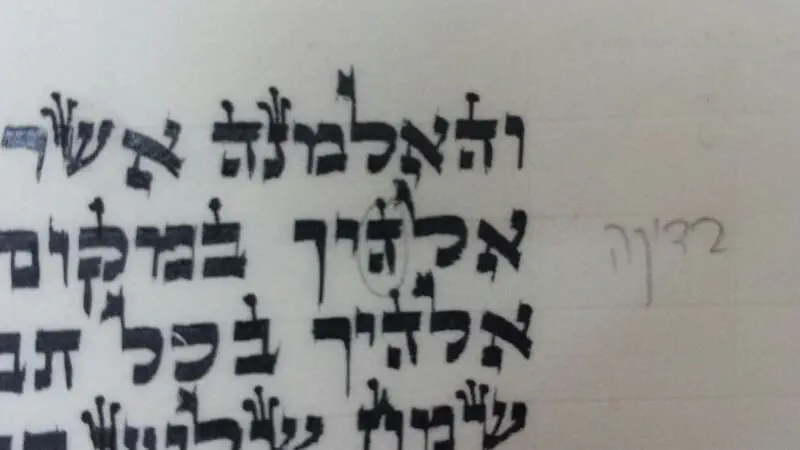 והאלמנה אשר
אלהיך במקום
אלהיך בכל תב
שמח שלוש
בדיקה